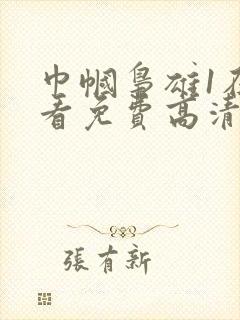 巾帼枭雄1在
看免費高清
張有新